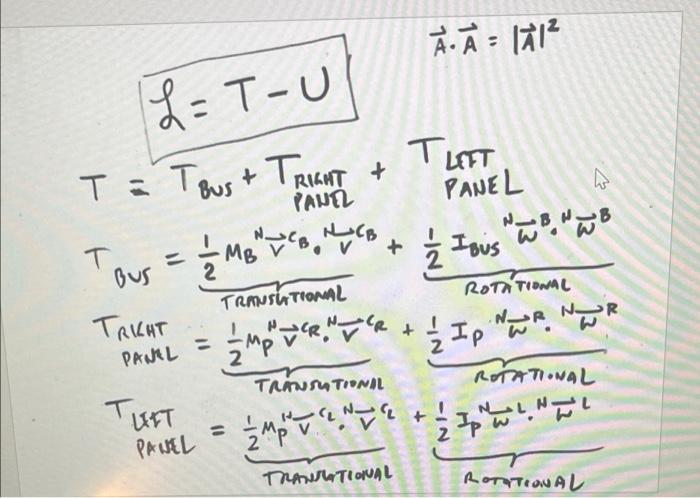 A⃗·A⃗ = |A⃗|²
ℒ = T - U
T = T BUS + T RIGHT PANEL + T LEFT PANEL
T BUS = 1/2 M_B ᴺV⃗^CB · ᴺV⃗^CB + 1/2 I_BUS ᴺω⃗^B · ᴺω⃗^B
TRANSLATIONAL ROTATIONAL
T RIGHT PANEL = 1/2 M_P ᴺV⃗^CR · ᴺV⃗^CR + 1/2 I_P ᴺω⃗^R · ᴺω⃗^R
TRANSLATIONAL ROTATIONAL
T LEFT PANEL = 1/2 M_P ᴺV⃗^CL · ᴺV⃗^CL + 1/2 I_P ᴺω⃗^L · ᴺω⃗^L
TRANSLATIONAL ROTATIONAL